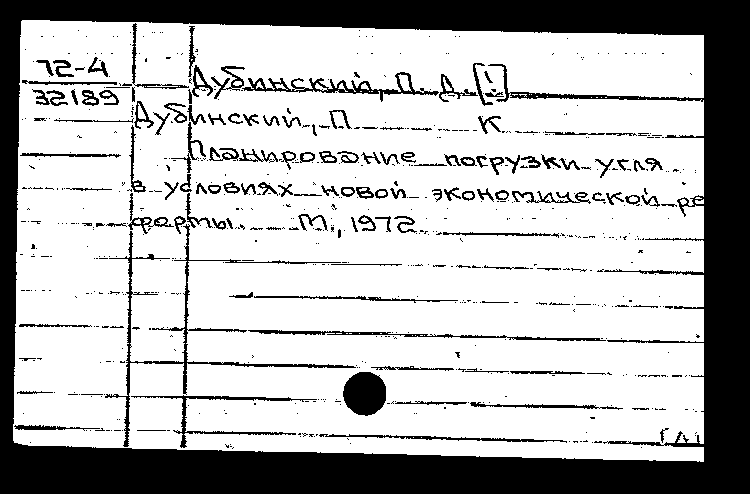 72-4
32189
Дубинский, П. Д. [!]
Дубинский, П К
Планирование погрузки угля
в условиях новой экономической ре
формы. М., 1972